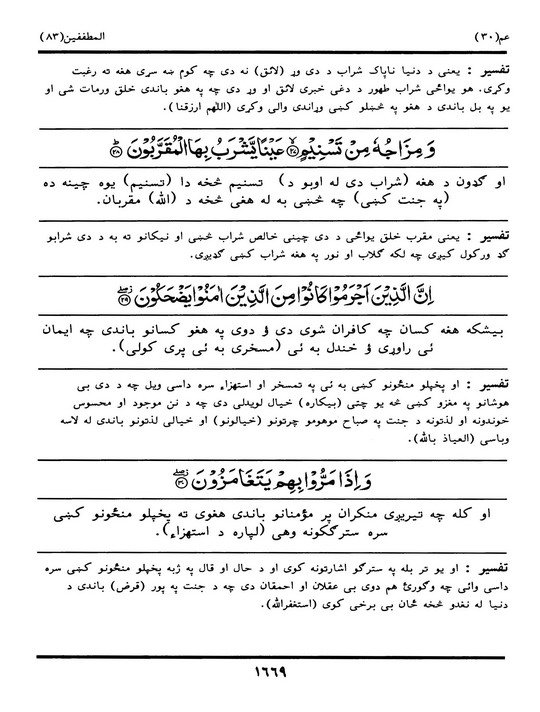 عم(٣٠) المطففين(٨٣)
تفسیر : یعنی د دنیا ناپاک شراب د دی وړ (لائق) نه دی چه کوم ښه سړی هغه ته رغبت
وکړی. هو یوائځی شراب طهور د دغی خبری لائق او وړ دی چه په هغو باندی خلق ورمات شی او
یو په بل باندی د هغو په څښلو کښی وړاندی والی وکړی (اللهم ارزقنا).
وَمِزَاجُهٗ مِنْ تَسْنِيْمٍ ﴿٢٧﴾ عَيْنًا يَّشْرَبُ بِهَا الْمُقَرَّبُوْنَ ﴿٢٨﴾
او ګډون د هغه (شراب دی له اوبو د) تسنیم څخه دا (تسنیم) یوه چینه ده
(په جنت کښی) چه څښی به له هغی څخه د (الله) مقربان.
تفسیر : یعنی مقرب خلق یوائځی د دی چینی خالص شراب څښی او نیکانو ته به د دی شرابو
ګډ ورکول کیږی چه لکه ګلاب او نور په هغه شراب کښی ګډیږی.
اِنَّ الَّذِيْنَ اَجْرَمُوْا كَانُوْا مِنَ الَّذِيْنَ اٰمَنُوْا يَضْحَكُوْنَ ﴿٢٩﴾
بیشکه هغه کسان چه کافران شوی دی ؤ دوی په هغو کسانو باندی چه ایمان
ئی راوړی ؤ خندل به ئی (مسخری به ئی پری کولی).
تفسیر : او پخپلو منځونو کښی به ئی په تمسخر او استهزاء سره داسی ویل چه د دی بی
هوشانو په مغزو کښی څه یو چتی (بیکاره) خیال لویدلی دی چه د نن موجود او محسوس
خوندونه او لذتونه د جنت په صباح موهومو چرتونو (خیالونو) او خیالی لذتونو باندی له لاسه
وباسی (العیاذ بالله).
وَاِذَا مَرُّوْا بِهِمْ يَتَغَامَزُوْنَ ﴿٣٠﴾
او کله چه تیریږی منکران پر مؤمنانو باندی هغوی ته پخپلو منځونو کښی
سره سترګکونه وهی (لپاره د استهزاء).
تفسیر : او یو تر بله په سترګو اشارتونه کوی او د حال او قال په ژبه پخپلو منځونو کښی سره
داسی وائی چه وګورئ هم دوی بی عقلان او احمقان دی چه د جنت په پور (قرض) باندی د
دنیا له نغدو څخه ځان بی برخی کوی (استغفرالله).
١٦٦٩